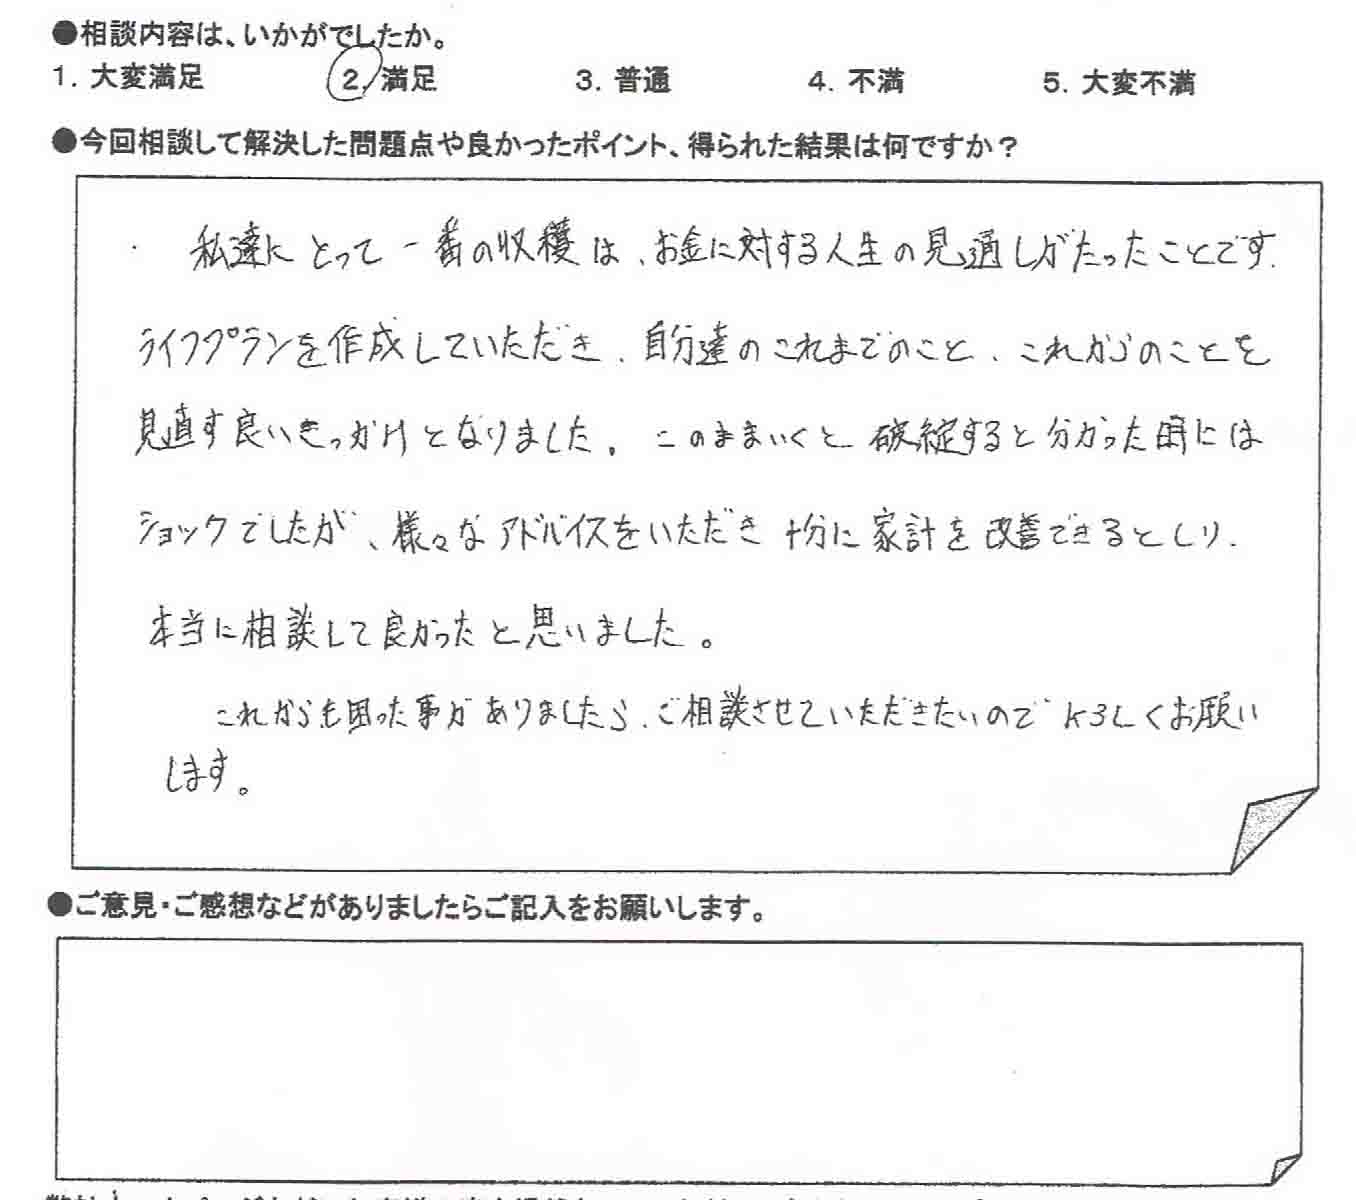 ●相談内容は、いかがでしたか。
1. 大変満足 2. 満足 3. 普通 4. 不満 5. 大変不満
●今回相談して解決した問題点や良かったポイント、得られた結果は何ですか？
私達にとって一番の収穫は、お金に対する人生の見通しがたったことです.
ライフプランを作成していただき、自分達のこれまでのこと、これからのことを
見直す良いきっかけとなりました。このままいくと破綻すると分かった時には
ショックでしたが、様々なアドバイスをいただき十分に家計を改善できるとしり、
本当に相談して良かったと思いました。
これからも困った事がありましたら、ご相談させていただきたいのでよろしくお願い
します。
●ご意見・ご感想などがありましたらご記入をお願いします。